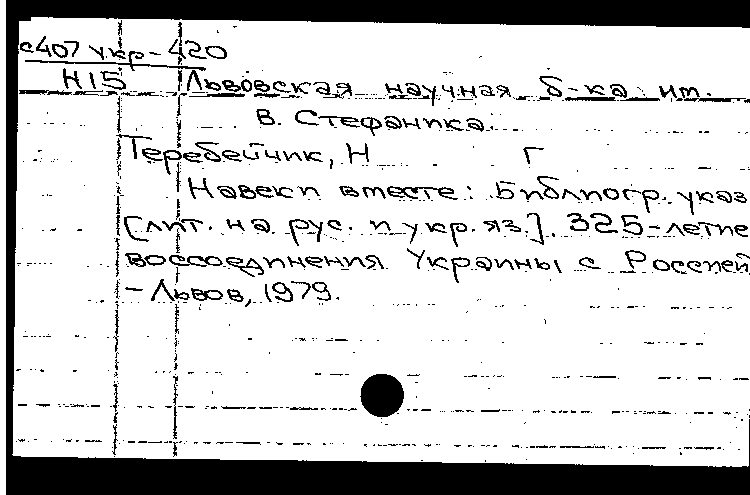 с407 укр-420
Н15 Львовская научная б-ка им.
В. Стефаника.
Теребейчик, Н Г
Навеки вместе: Библиогр. указ
[лит. на рус. и укр. яз.]. 325-летие
воссоединения Украины с Россией
- Львов, 1979.